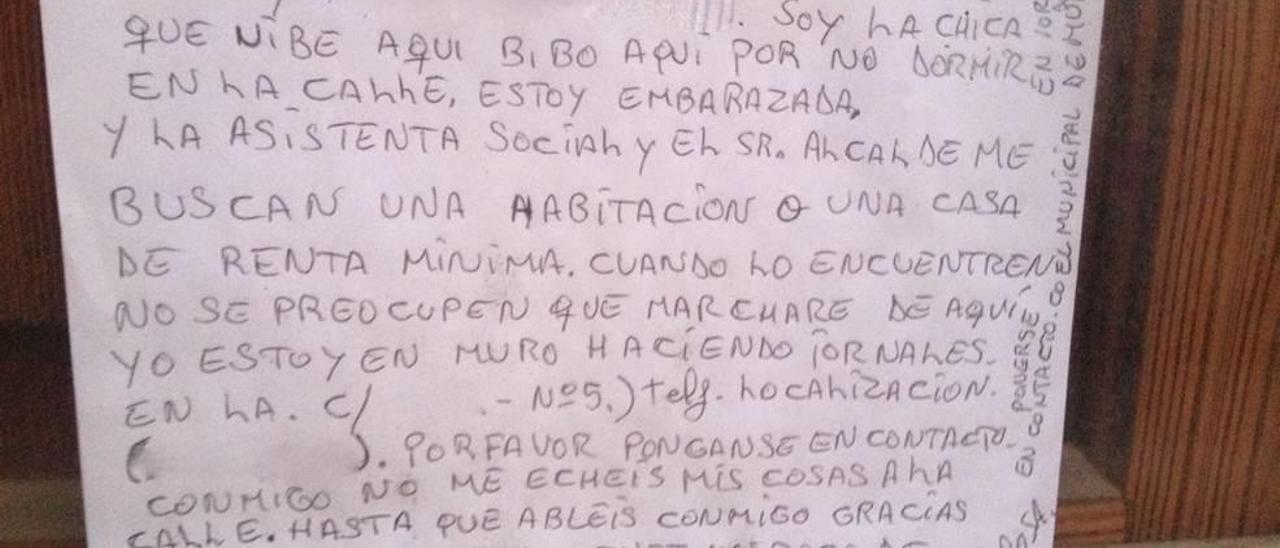 . SOY LA CHICA
QUE NIBE AQUI BIBO AQUI POR NO DORMIR
EN LA CALLE, ESTOY EMBARAZADA,
Y LA ASISTENTA SOCIAL Y EL SR. ALCALDE ME
BUSCAN UNA HABITACION O UNA CASA
DE RENTA MINIMA. CUANDO LO ENCUENTREN
NO SE PREOCUPEN QUE MARCHARE DE AQUI,
YO ESTOY EN MURO HACIENDO IORNALES.
EN LA. C/ .- Nº5.) telf. LOCALIZACION.
( ). POR FAVOR PONGANSE EN CONTACTO.
CONMIGO NO ME ECHEIS MIS COSAS A LA
CALLE. HASTA QUE ABLEIS CONMIGO GRACIAS
PONERSE
EN CONTACTO. CO EL MUNICIPAL DE